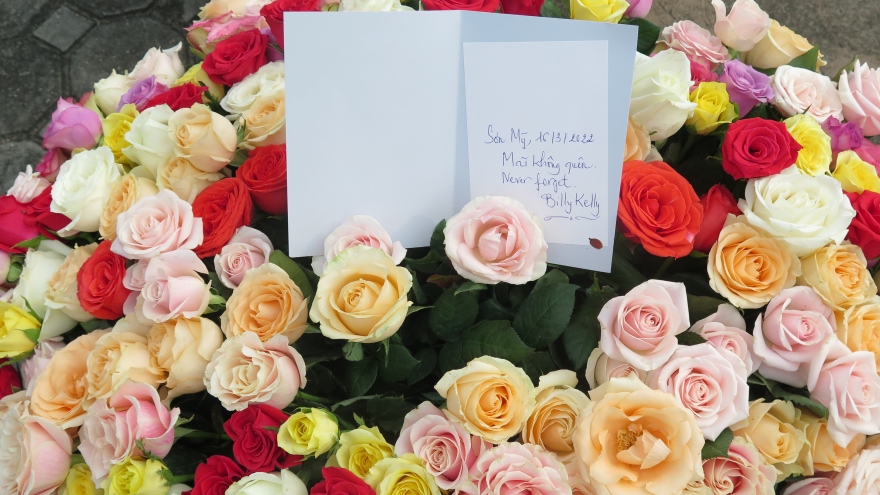 Sơn Mỹ, 16/3/2022
Mãi không quên.
Never forget.
Billy Kelly